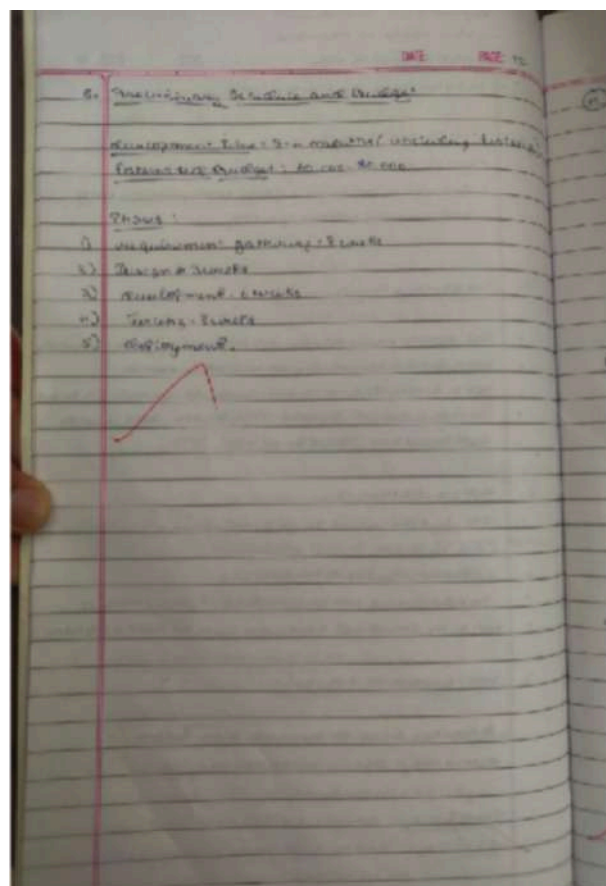 DATE PAGE 12
8. Preliminary Schedule and Budget
Development Time : 3-4 months ( including testing)
Estimated Budget :
Phases :
1) requirement gathering - 2 weeks
2) Design - 3 weeks
3) development - weeks
4) Testing - 2 weeks
5) deployment.